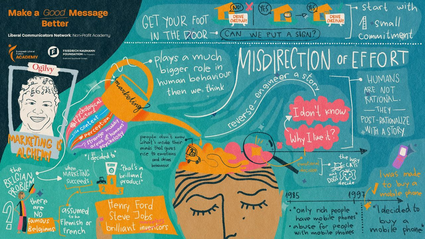 Make a Good Message
Better
Liberal Communicators Network
ACADEMY
FRIEDRICH NAUMANN
FOUNDATION
GET YOUR FOOT
IN THE DOOR
CAN WE PUT A SIGN?
YES
start with
1 small
commitment
plays a much
bigger role in
human behaviour
than we think
MISDIRECTION OF EFFORT
reverse-engineer a story
HUMANS
ARE NOT
RATIONAL
THEY
POST-RATIONALIZE
WITH A STORY
I don't know
Why I like it?
Ogilvy
marketing
Context
Perception
MARKETING &
ALCHEMY
the
BELGIAN
PROBLEM
there
are NO
famous
Belgians
WHEN
MARKETING
SUCCEEDS
that's a
brilliant
product
assumed
to be
Flemish or
French
Henry Ford
Steve Jobs
brilliant inventors
1985
"only rich people
have mobile phones"
abuse for people
with mobile phones
1997
I was made
to buy a
mobile phone
I decided to
buy a
mobile phone